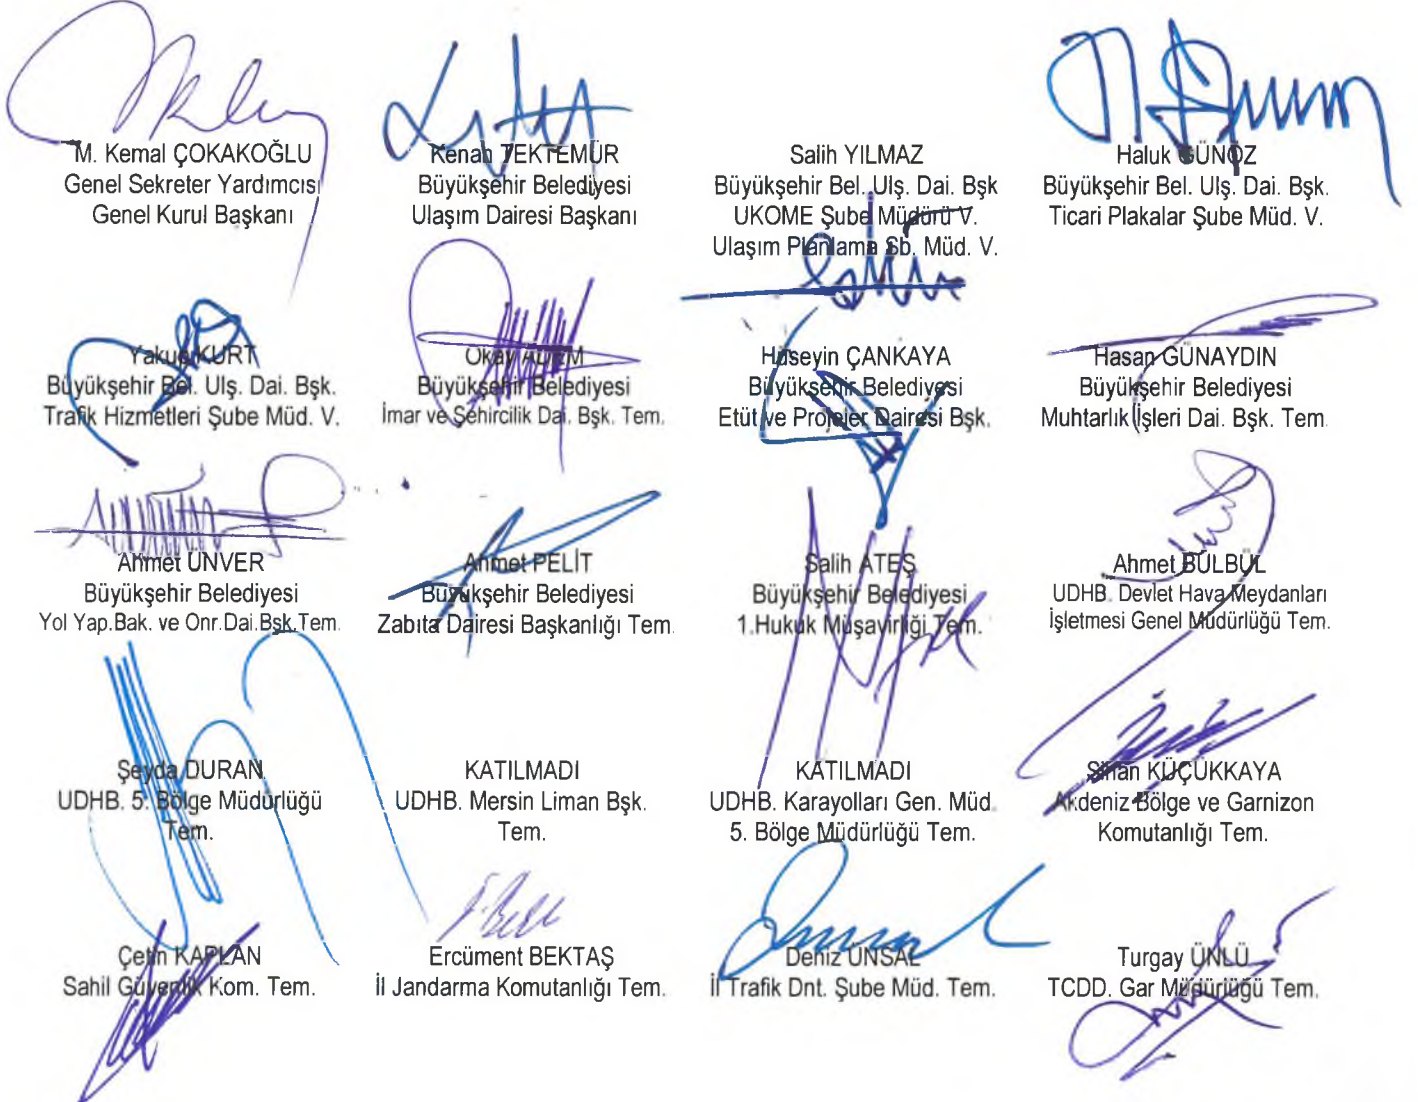 M. Kemal ÇOKAKOĞLU
Genel Sekreter Yardımcısı
Genel Kurul Başkanı
Kenan TEKTEMÜR
Büyükşehir Belediyesi
Ulaşım Dairesi Başkanı
Salih YILMAZ
Büyükşehir Bel. Ulş. Dai. Bşk
UKOME Şube Müdürü V.
Ulaşım Planlama Şb. Müd. V.
Haluk GÜNÖZ
Büyükşehir Bel. Ulş. Dai. Bşk.
Ticari Plakalar Şube Müd. V.
Yakup KURT
Büyükşehir Bel. Ulş. Dai. Bşk.
Trafik Hizmetleri Şube Müd. V.
Okay
Büyükşehir Belediyesi
İmar ve Şehircilik Dai. Bşk. Tem.
Hüseyin ÇANKAYA
Büyükşehir Belediyesi
Etüt ve Projeler Dairesi Bşk.
Hasan GÜNAYDIN
Büyükşehir Belediyesi
Muhtarlık İşleri Dai. Bşk. Tem.
Ahmet ÜNVER
Büyükşehir Belediyesi
Yol Yap.Bak. ve Onr.Dai.Bşk.Tem.
Ahmet PELİT
Büyükşehir Belediyesi
Zabıta Dairesi Başkanlığı Tem.
Salih ATEŞ
Büyükşehir Belediyesi
1.Hukuk Müşavirliği Tem.
Ahmet BÜLBÜL
UDHB. Devlet Hava Meydanları
İşletmesi Genel Müdürlüğü Tem.
Şeyda DURAN
UDHB. 5. Bölge Müdürlüğü
Tem.
KATILMADI
UDHB. Mersin Liman Bşk.
Tem.
KATILMADI
UDHB. Karayolları Gen. Müd.
5. Bölge Müdürlüğü Tem.
Sinan KÜÇÜKKAYA
Akdeniz Bölge ve Garnizon
Komutanlığı Tem.
Çetin KAPLAN
Sahil Güvenlik Kom. Tem.
Ercüment BEKTAŞ
İl Jandarma Komutanlığı Tem.
Deniz ÜNSAL
İl Trafik Dnt. Şube Müd. Tem.
Turgay ÜNLÜ
TCDD. Gar Müdürlüğü Tem.